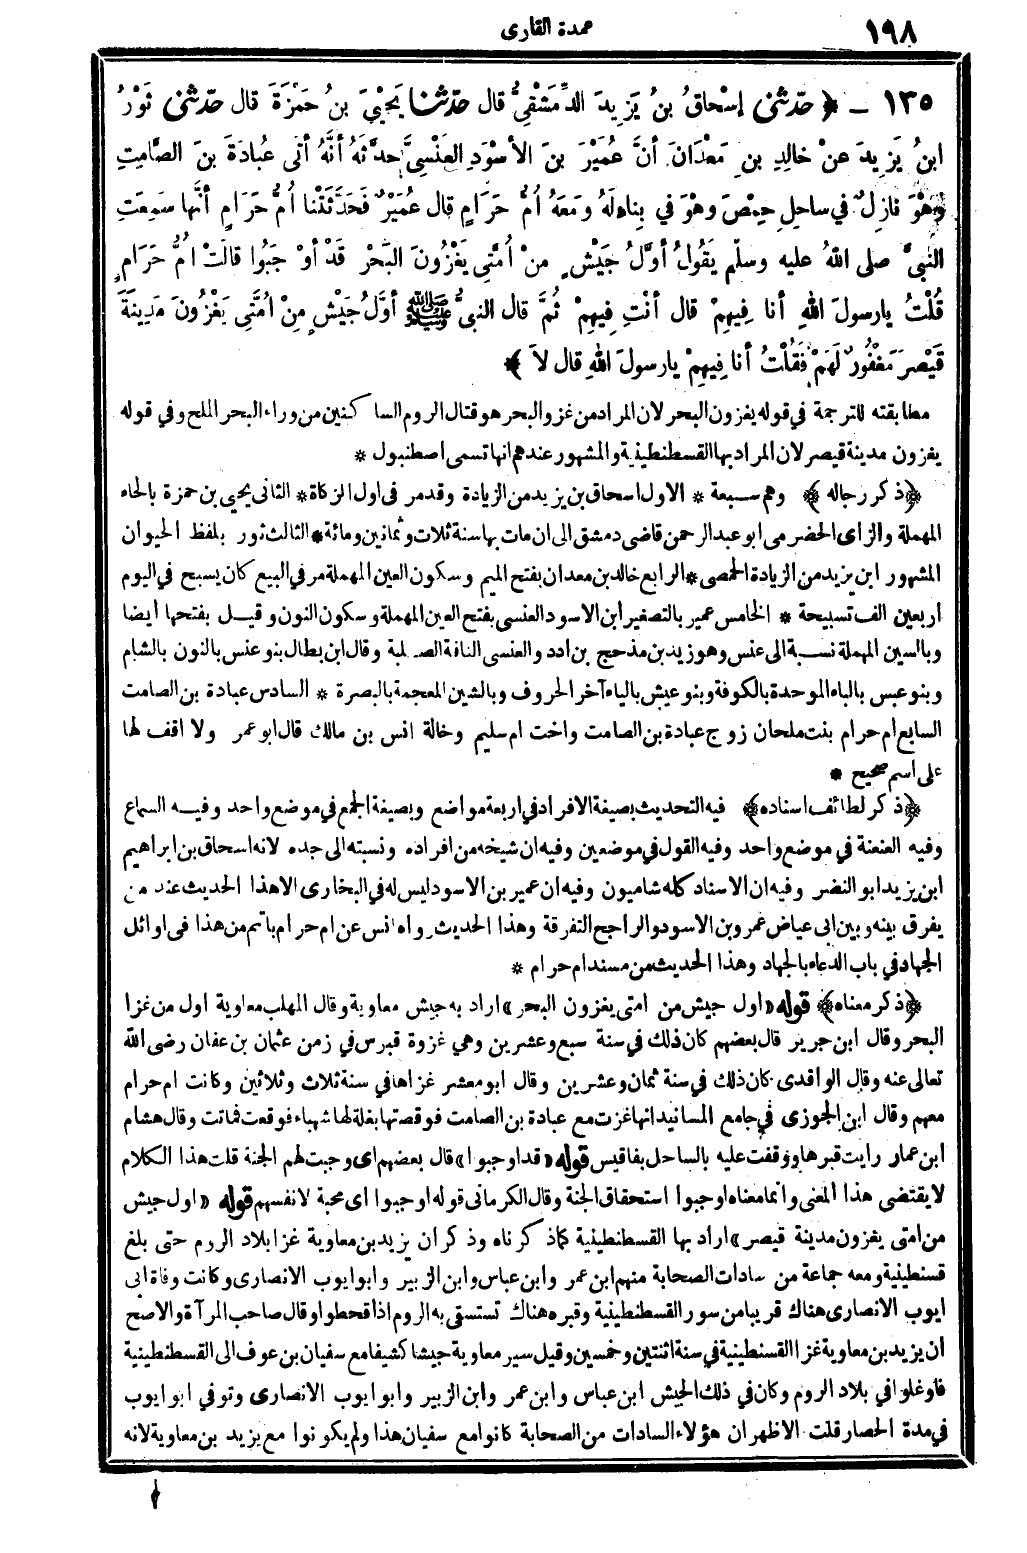 ١٩٨
عمدة القارى
١٣٥ - ﴿ حَدَّثَنِي إِسْحَاقُ بنُ يَزِيدَ الدِّمَشْقِيُّ قال حَدَّثَنَا يَحْيَىٰ بنُ حَمْزَةَ قال حَدَّثَنِي ثَوْرُ
ابنُ يَزِيدَ عنْ خالِدِ بنِ مَعْدَانَ أنَّ عُمَيْرَ بنَ الأسْوَدِ العَنْسِيَّ حدَّثَهُ أنَّهُ أتَى عُبادَةَ بنَ الصَّامِتِ
وهْوَ نازِلٌ في ساحلِ حِمْصَ وهْوَ في بِناءٍ لَهُ ومَعَهُ أُمُّ حَرَامٍ قال عُمَيْرٌ فَحَدَّثَتْنا أُمُّ حَرَامٍ أنَّها سَمِعَتِ
النبيَّ صلى اللهُ عليه وسلّم يَقُولُ أوَّلُ جَيْشٍ مِنْ أُمَّتِي يَغْزُونَ البَحْرَ قَدْ أوْجَبُوا قالَتْ أُمُّ حَرَامٍ
قُلْتُ يارسولَ اللهِ أنا فِيهِمْ قال أنْتِ فِيهِمْ ثُمَّ قال النبيُّ ﷺ أوَّلُ جَيْشٍ مِنْ أُمَّتِي يَغْزُونَ مَدِينَةَ
قَيْصَرَ مَغْفُورٌ لَهُمْ فَقُلْتُ أنا فِيهِمْ يارسولَ اللهِ قال لاَ ﴾
مطابقته للترجمة في قوله يغزون البحر لان المراد من غزو البحر هو قتال الروم الساكنين من وراء البحر الملح وفي قوله
يغزون مدينة قيصر لان المراد بها القسطنطينية والمشهور عندهم انها تسمى اصطنبول *
﴿ ذكر رجاله ﴾ وهم سبعة * الاول اسحاق بن يزيد من الزيادة وقد مر في اول الزكاة * الثانى يحيى بن حمزة بالحاء
المهملة والزاى الحضرمى ابو عبد الرحمن قاضى دمشق الى ان مات بها سنة ثلاث وثمانين ومائة * الثالث ثور بلفظ الحيوان
المشهور ابن يزيد من الزيادة الحمصى * الرابع خالد بن معدان بفتح الميم وسكون العين المهملة مر في البيع كان يسبح في اليوم
اربعين الف تسبيحة * الخامس عمير بالتصغير ابن الاسود العنسى بفتح العين المهملة وسكون النون وقيل بفتحها أيضا
وبالسين المهملة نسبة الى عنس وهو زيد بن مذحج بن ادد والعنسى الناقة الصلبة وقال ابن بطال بنو عنس بالنون بالشام
وبنو عبس بالباء الموحدة بالكوفة وبنو عيش بالياء آخر الحروف وبالشين المعجمة بالبصرة * السادس عبادة بن الصامت
السابع ام حرام بنت ملحان زوج عبادة بن الصامت واخت ام سليم وخالة انس بن مالك قال ابو عمر ولا اقف لها
على اسم صحيح *
﴿ ذكر لطائف اسناده ﴾ فيه التحديث بصيغة الافراد في اربعة مواضع وبصيغة الجمع في موضع واحد وفيه السماع
وفيه العنعنة في موضع واحد وفيه القول في موضعين وفيه ان شيخه من افراده ونسبته الى جده لانه اسحاق بن ابراهيم
ابن يزيد ابو النضر وفيه ان الاسناد كله شاميون وفيه ان عمير بن الاسود ليس له في البخارى الا هذا الحديث عند من
يفرق بينه وبين ابى عياض عمرو بن الاسود والراجح التفرقة وهذا الحديث رواه انس عن ام حرام باتم من هذا في اوائل
الجهاد في باب الدعاء بالجهاد وهذا الحديث من مسند ام حرام *
﴿ ذكر معناه ﴾ قوله «اول جيش من امتى يغزون البحر» اراد به جيش معاوية وقال المهلب معاوية اول من غزا
البحر وقال ابن جرير قال بعضهم كان ذلك في سنة سبع وعشرين وهي غزوة قبرس في زمن عثمان بن عفان رضى الله
تعالى عنه وقال الواقدى كان ذلك في سنة ثمان وعشرين وقال ابو معشر غزاها في سنة ثلاث وثلاثين وكانت ام حرام
معهم وقال ابن الجوزى في جامع المسانيد انها غزت مع عبادة بن الصامت فوقصتها بغلة لها شهباء فوقعت فماتت وقال هشام
ابن عمار رايت قبرها ووقفت عليه بالساحل بفاقيس قوله «قد اوجبوا» قال بعضهم اى وجبت لهم الجنة قلت هذا الكلام
لا يقتضى هذا المعنى وانما معناه اوجبوا استحقاق الجنة وقال الكرمانى قوله اوجبوا اى محبة لانفسهم قوله «اول جيش
من امتى يغزون مدينة قيصر» اراد بها القسطنطينية كما ذكرناه وذكر ان يزيد بن معاوية غزا بلاد الروم حتى بلغ
قسنطينية ومعه جماعة من سادات الصحابة منهم ابن عمر وابن عباس وابن الزبير وابو ايوب الانصارى وكانت وفاة ابى
ايوب الانصارى هناك قريبا من سور القسطنطينية وقبره هناك تستسقى به الروم اذا قحطوا وقال صاحب المرآة والاصح
ان يزيد بن معاوية غزا القسنطينية في سنة اثنتين وخمسين وقيل سير معاوية جيشا كثيفا مع سفيان بن عوف الى القسطنطينية
فاوغلوا في بلاد الروم وكان في ذلك الجيش ابن عباس وابن عمر وابن الزبير وابو ايوب الانصارى وتوفي ابو ايوب
في مدة الحصار قلت الاظهر ان هؤلاء السادات من الصحابة كانوا مع سفيان هذا ولم يكونوا مع يزيد بن معاوية لانه